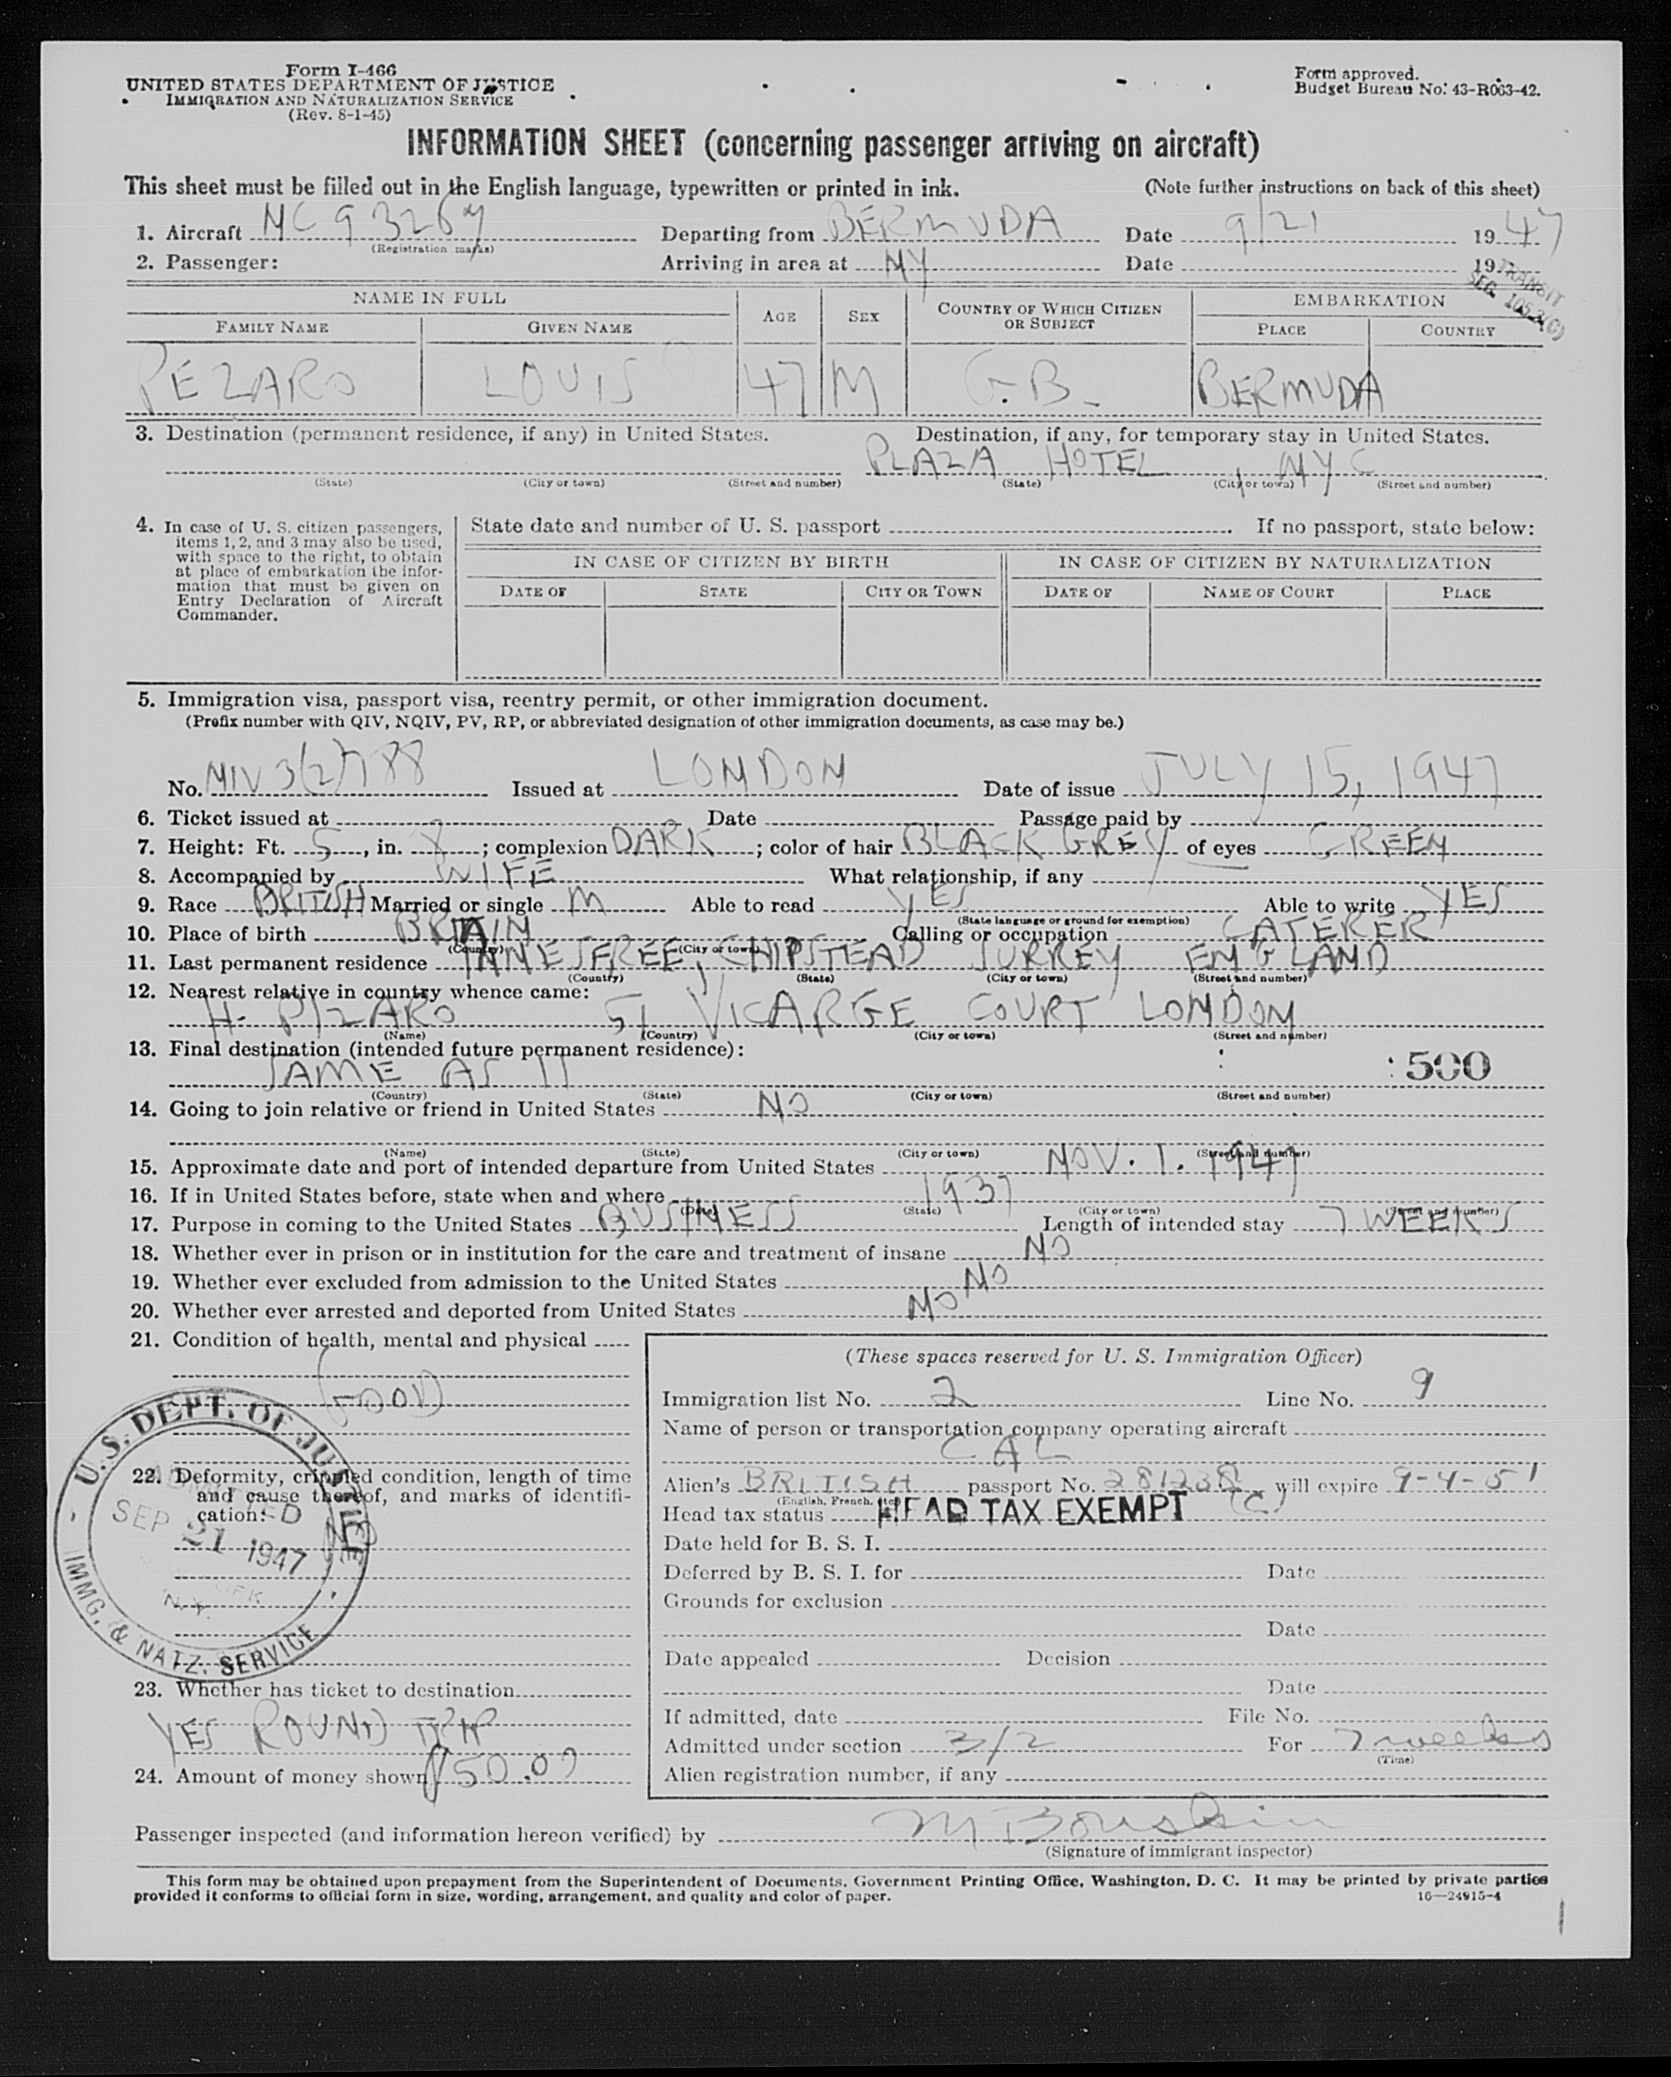 Form I-466
UNITED STATES DEPARTMENT OF JUSTICE
IMMIGRATION AND NATURALIZATION SERVICE
(Rev. 8-1-45)
Form approved.
Budget Bureau No. 43-R063-42.
INFORMATION SHEET (concerning passenger arriving on aircraft)
This sheet must be filled out in the English language, typewritten or printed in ink. (Note further instructions on back of this sheet)
1. Aircraft (Registration marks) Departing from BERMUDA Date 9/21 1947
2. Passenger: Arriving in area at NY Date 19
TRANSIT
SEC.
NAME IN FULL AGE SEX COUNTRY OF WHICH CITIZEN OR SUBJECT EMBARKATION
FAMILY NAME GIVEN NAME PLACE COUNTRY
PEZARO LOUIS 47 M G.B. BERMUDA
3. Destination (permanent residence, if any) in United States. Destination, if any, for temporary stay in United States.
PLAZA HOTEL, NYC
(State) (City or town) (Street and number) (State) (City or town) (Street and number)
4. In case of U. S. citizen passengers, items 1, 2, and 3 may also be used, with space to the right, to obtain at place of embarkation the information that must be given on Entry Declaration of Aircraft Commander.
State date and number of U. S. passport If no passport, state below:
IN CASE OF CITIZEN BY BIRTH IN CASE OF CITIZEN BY NATURALIZATION
DATE OF STATE CITY OR TOWN DATE OF NAME OF COURT PLACE
5. Immigration visa, passport visa, reentry permit, or other immigration document.
(Prefix number with QIV, NQIV, PV, RP, or abbreviated designation of other immigration documents, as case may be.)
No. Issued at LONDON Date of issue JULY 15, 1947
6. Ticket issued at Date Passage paid by
7. Height: Ft. 5, in. 8; complexion DARK; color of hair BLACK GREY of eyes GREEN
8. Accompanied by WIFE What relationship, if any
9. Race BRITISH Married or single M Able to read YES Able to write YES
(State language or ground for exemption)
10. Place of birth BRITAIN Calling or occupation CATERER
(Country) (City or town)
11. Last permanent residence INNESFREE, CHIPSTEAD SURREY ENGLAND
(Country) (State) (City or town) (Street and number)
12. Nearest relative in country whence came:
H. PIZARO 51 VICARGE COURT LONDON
(Name) (Country) (City or town) (Street and number)
13. Final destination (intended future permanent residence):
SAME AS 11 :500
(Country) (State) (City or town) (Street and number)
14. Going to join relative or friend in United States NO
(Name) (State) (City or town) (Street and number)
15. Approximate date and port of intended departure from United States NOV. 1. 1947
16. If in United States before, state when and where 1937
(Date) (State) (City or town) (Street and number)
17. Purpose in coming to the United States BUSINESS Length of intended stay 7 WEEKS
18. Whether ever in prison or in institution for the care and treatment of insane NO
19. Whether ever excluded from admission to the United States NO
20. Whether ever arrested and deported from United States NO
21. Condition of health, mental and physical
GOOD
22. Deformity, crippled condition, length of time and cause thereof, and marks of identification:
NO
U.S. DEPT. OF JUSTICE
ADMITTED
SEP 21 1947
N.Y.
IMMG. & NATZ. SERVICE
23. Whether has ticket to destination
YES ROUND TRIP
24. Amount of money shown
(These spaces reserved for U. S. Immigration Officer)
Immigration list No. 2 Line No. 9
Name of person or transportation company operating aircraft
CAL
Alien's BRITISH passport No. 281238 will expire 9-4-51
(English, French, etc.)
Head tax status HEAD TAX EXEMPT (C)
Date held for B. S. I.
Deferred by B. S. I. for Date
Grounds for exclusion
Date
Date appealed Decision
Date
If admitted, date File No.
Admitted under section 3/2 For 7 weeks
(Time)
Alien registration number, if any
Passenger inspected (and information hereon verified) by
(Signature of immigrant inspector)
This form may be obtained upon prepayment from the Superintendent of Documents, Government Printing Office, Washington, D. C. It may be printed by private parties
provided it conforms to official form in size, wording, arrangement, and quality and color of paper. 16—24915-4